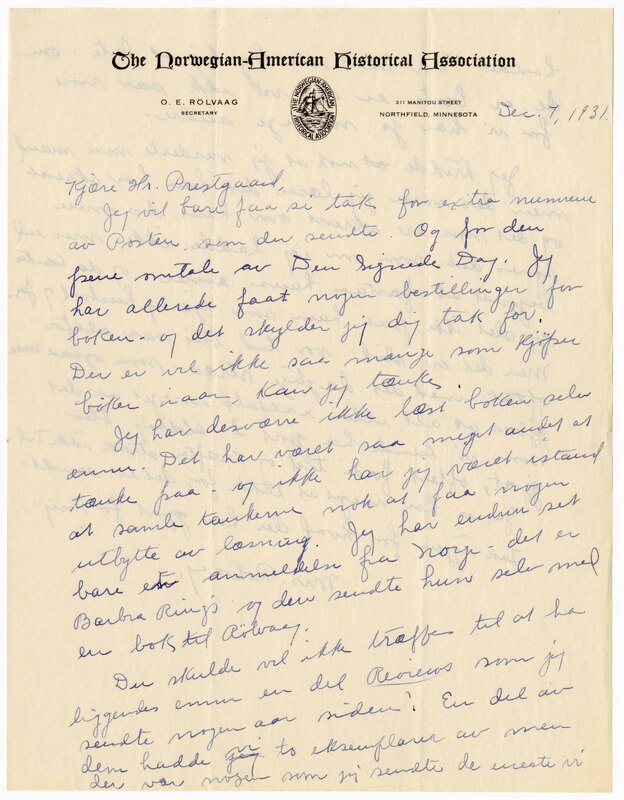 The Norwegian-American Historical Association
O. E. RÖLVAAG
SECRETARY
THE NORWEGIAN-AMERICAN HISTORICAL ASSOCIATION
311 MANITOU STREET
NORTHFIELD, MINNESOTA
Dec. 7, 1931.
Kjære Hr. Prestgaard,
Jeg vil bare faa si tak for extra numrene
av Posten, som du sendte. Og for den
pene omtale av Den Signede Dag. Jeg
har allerede faat nogen bestillinger for
boken - og det skylder jeg dig tak for.
Der er vel ikke saa mange som kjøper
bøker iaar, kan jeg tænke.
Jeg har desværre ikke læst boken selv
ennu. Det har været saa meget andet at
tænke paa - og ikke har jeg været istand
at samle tankerne nok at faa nogen
utbytte av læsning. Jeg har endnu set
bare en anmeldelse fra Norge - det er
Barbra Ring's og den sendte hun selv med
en bok til Rölvaag.
Du skulde vel ikke træffes til at ha
liggendes ennu en del Reviews som jeg
sendte nogen aar siden? En del av
dem hadde vi to eksemplarer av men
der var nogen som jeg sendte de eneste vi